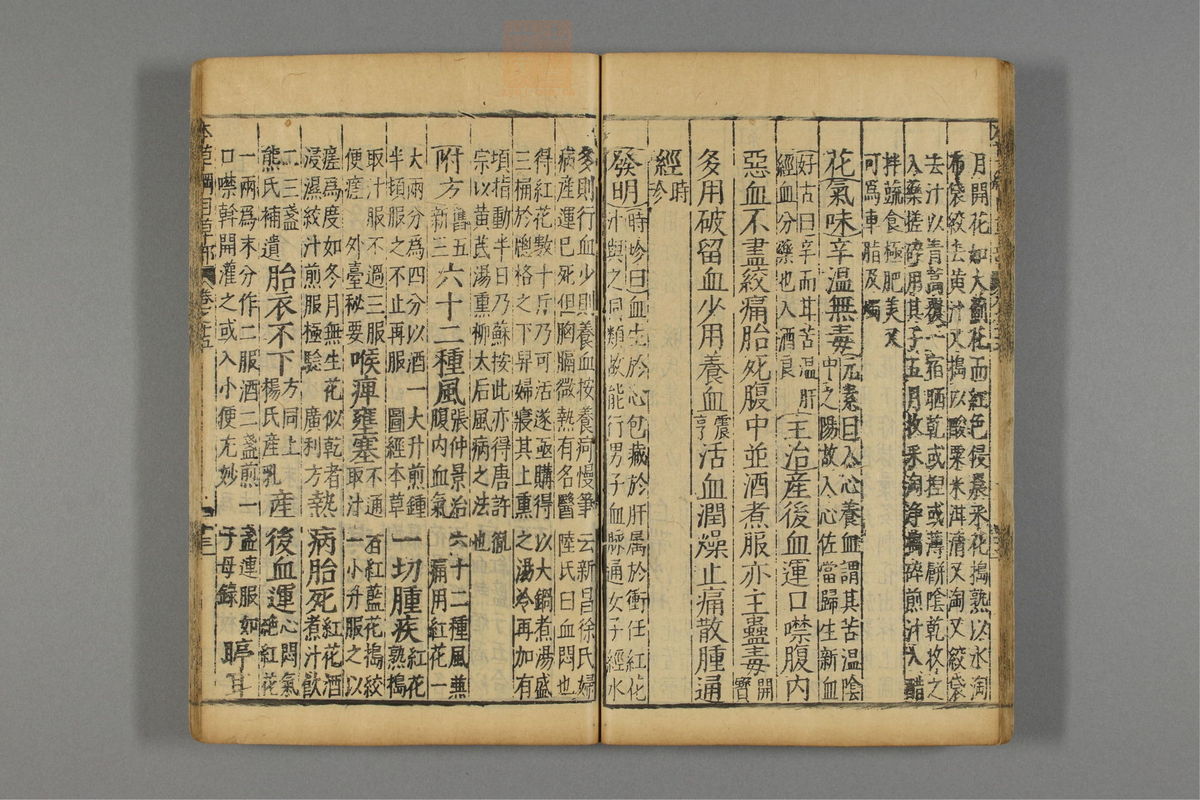 月開花如大薊花而紅色侵晨采花搗熟以水淘
布袋絞去黃汁又搗以酸粟米泔清又淘又絞袋
去汁以青蒿覆一宿晒乾或捏或薄餅陰乾收之
入藥搓碎用其子五月收采淘淨搗碎煎汁入醋
拌蔬食極肥美又
可為車脂及燭
花氣味辛溫無毒元素曰入心養血謂其苦溫陰中之陽故入心佐當歸生新血
好古曰辛而甘苦溫肝經血分藥也入酒良主治產後血運口噤腹內
惡血不盡絞痛胎死腹中並酒煮服亦主蠱毒開寶
多用破留血少用養血震亨活血潤燥止痛散腫通
經時珍
發明時珍曰血生於心包藏於肝屬於衝任紅花汁與之同類故能行男子血脉通女子經水
多則行血少則養血按養疴慢筆云新昌徐氏婦
病產運已死但胸膈微熱有名醫陸氏曰血悶也
得紅花數十斤乃可活遂亟購得以大鍋煮湯盛
三桶於牕格之下舁婦寢其上熏之湯冷再加有
頃指動半日乃蘇按此亦得唐許胤
宗以黃芪湯熏柳太后風病之法也
附方舊五新三六十二種風張仲景治六十二種風兼腹內血氣痛用紅花一
大兩分為四分以酒一大升煎鍾半頓服之不止再服 圖經本草一切腫疾紅花熟搗
取汁服不過三服便瘥 外臺秘要喉痺壅塞不通取汁石紅藍花搗絞一小升服之以
瘥為度如冬月無生花似乾者浸濕絞汁煎服極驗 廣利方熱病胎死紅花酒煮汁飲
二三盞熊氏補遺胎衣不下方同上楊氏產乳產後血運心悶氣絕紅花
一兩為末分作二服酒二盞煎一盞連服如口噤斡開灌之或入小便尤妙子母錄聤耳